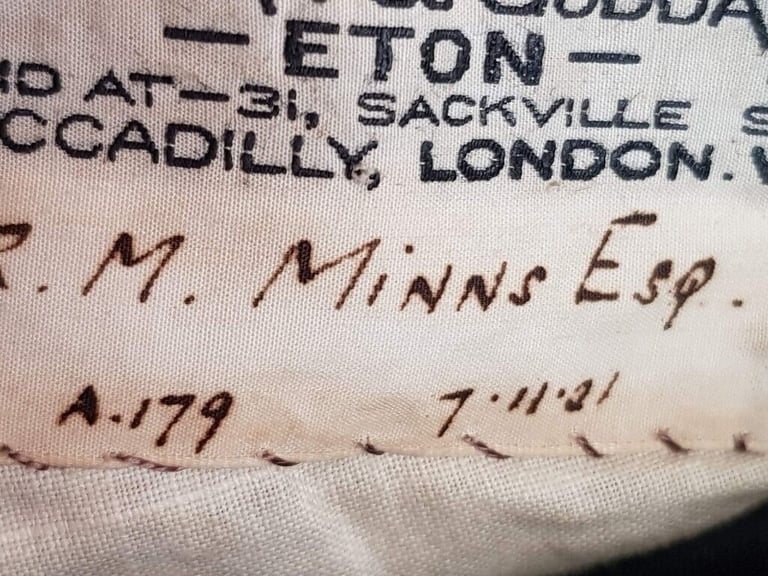 — ETON —
AT — 31, SACKVILLE
CCADILLY, LONDON.
R. M. Minns Esq.
A.179 7.11.21